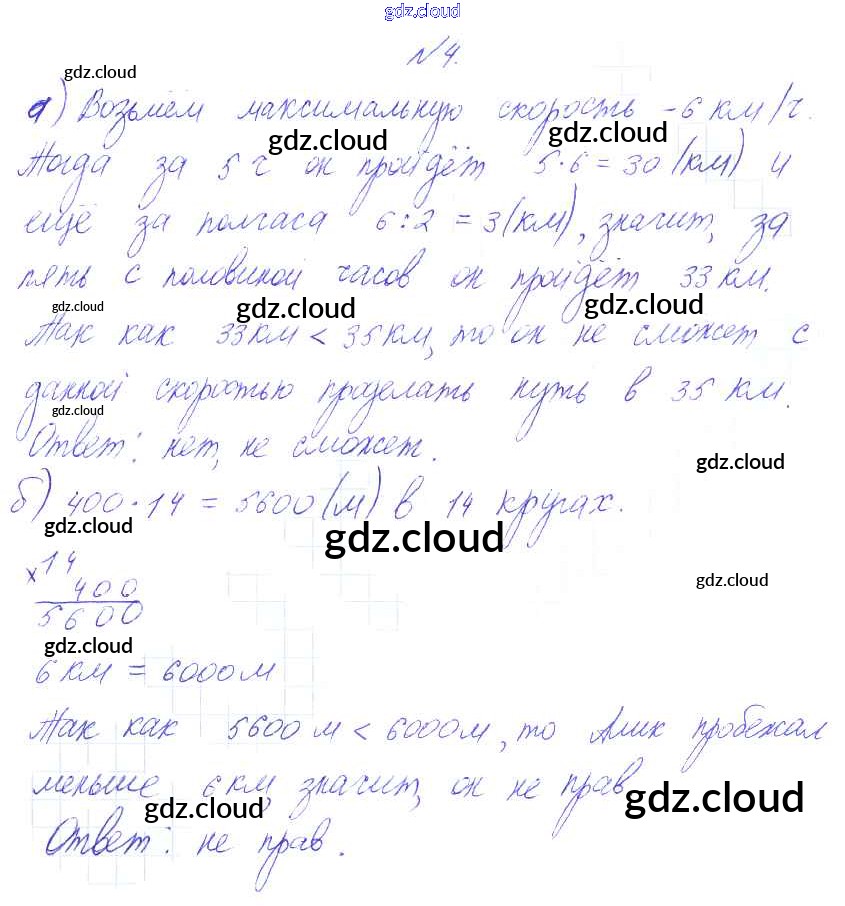 gdz.cloud
№4.
gdz.cloud
а) Возьмём максимальную скорость - 6 км/ч.
gdz.cloud gdz.cloud
Тогда за 5 ч он пройдёт 5·6=30 (км) и
ещё за полчаса 6:2=3(км), значит, за
пять с половиной часов он пройдёт 33 км.
gdz.cloud gdz.cloud gdz.cloud
Так как 33км < 35км, то он не сможет с
данной скоростью проделать путь в 35 км.
gdz.cloud
Ответ: нет, не сможет.
gdz.cloud
б) 400·14 = 5600(м) в 14 кругах.
gdz.cloud gdz.cloud
×14
gdz.cloud
400
5600
gdz.cloud
6 км = 6000м
Так как 5600м < 6000м, то Алик пробежал
меньше 6км, значит, он не прав
gdz.cloud gdz.cloud
Ответ: не прав.